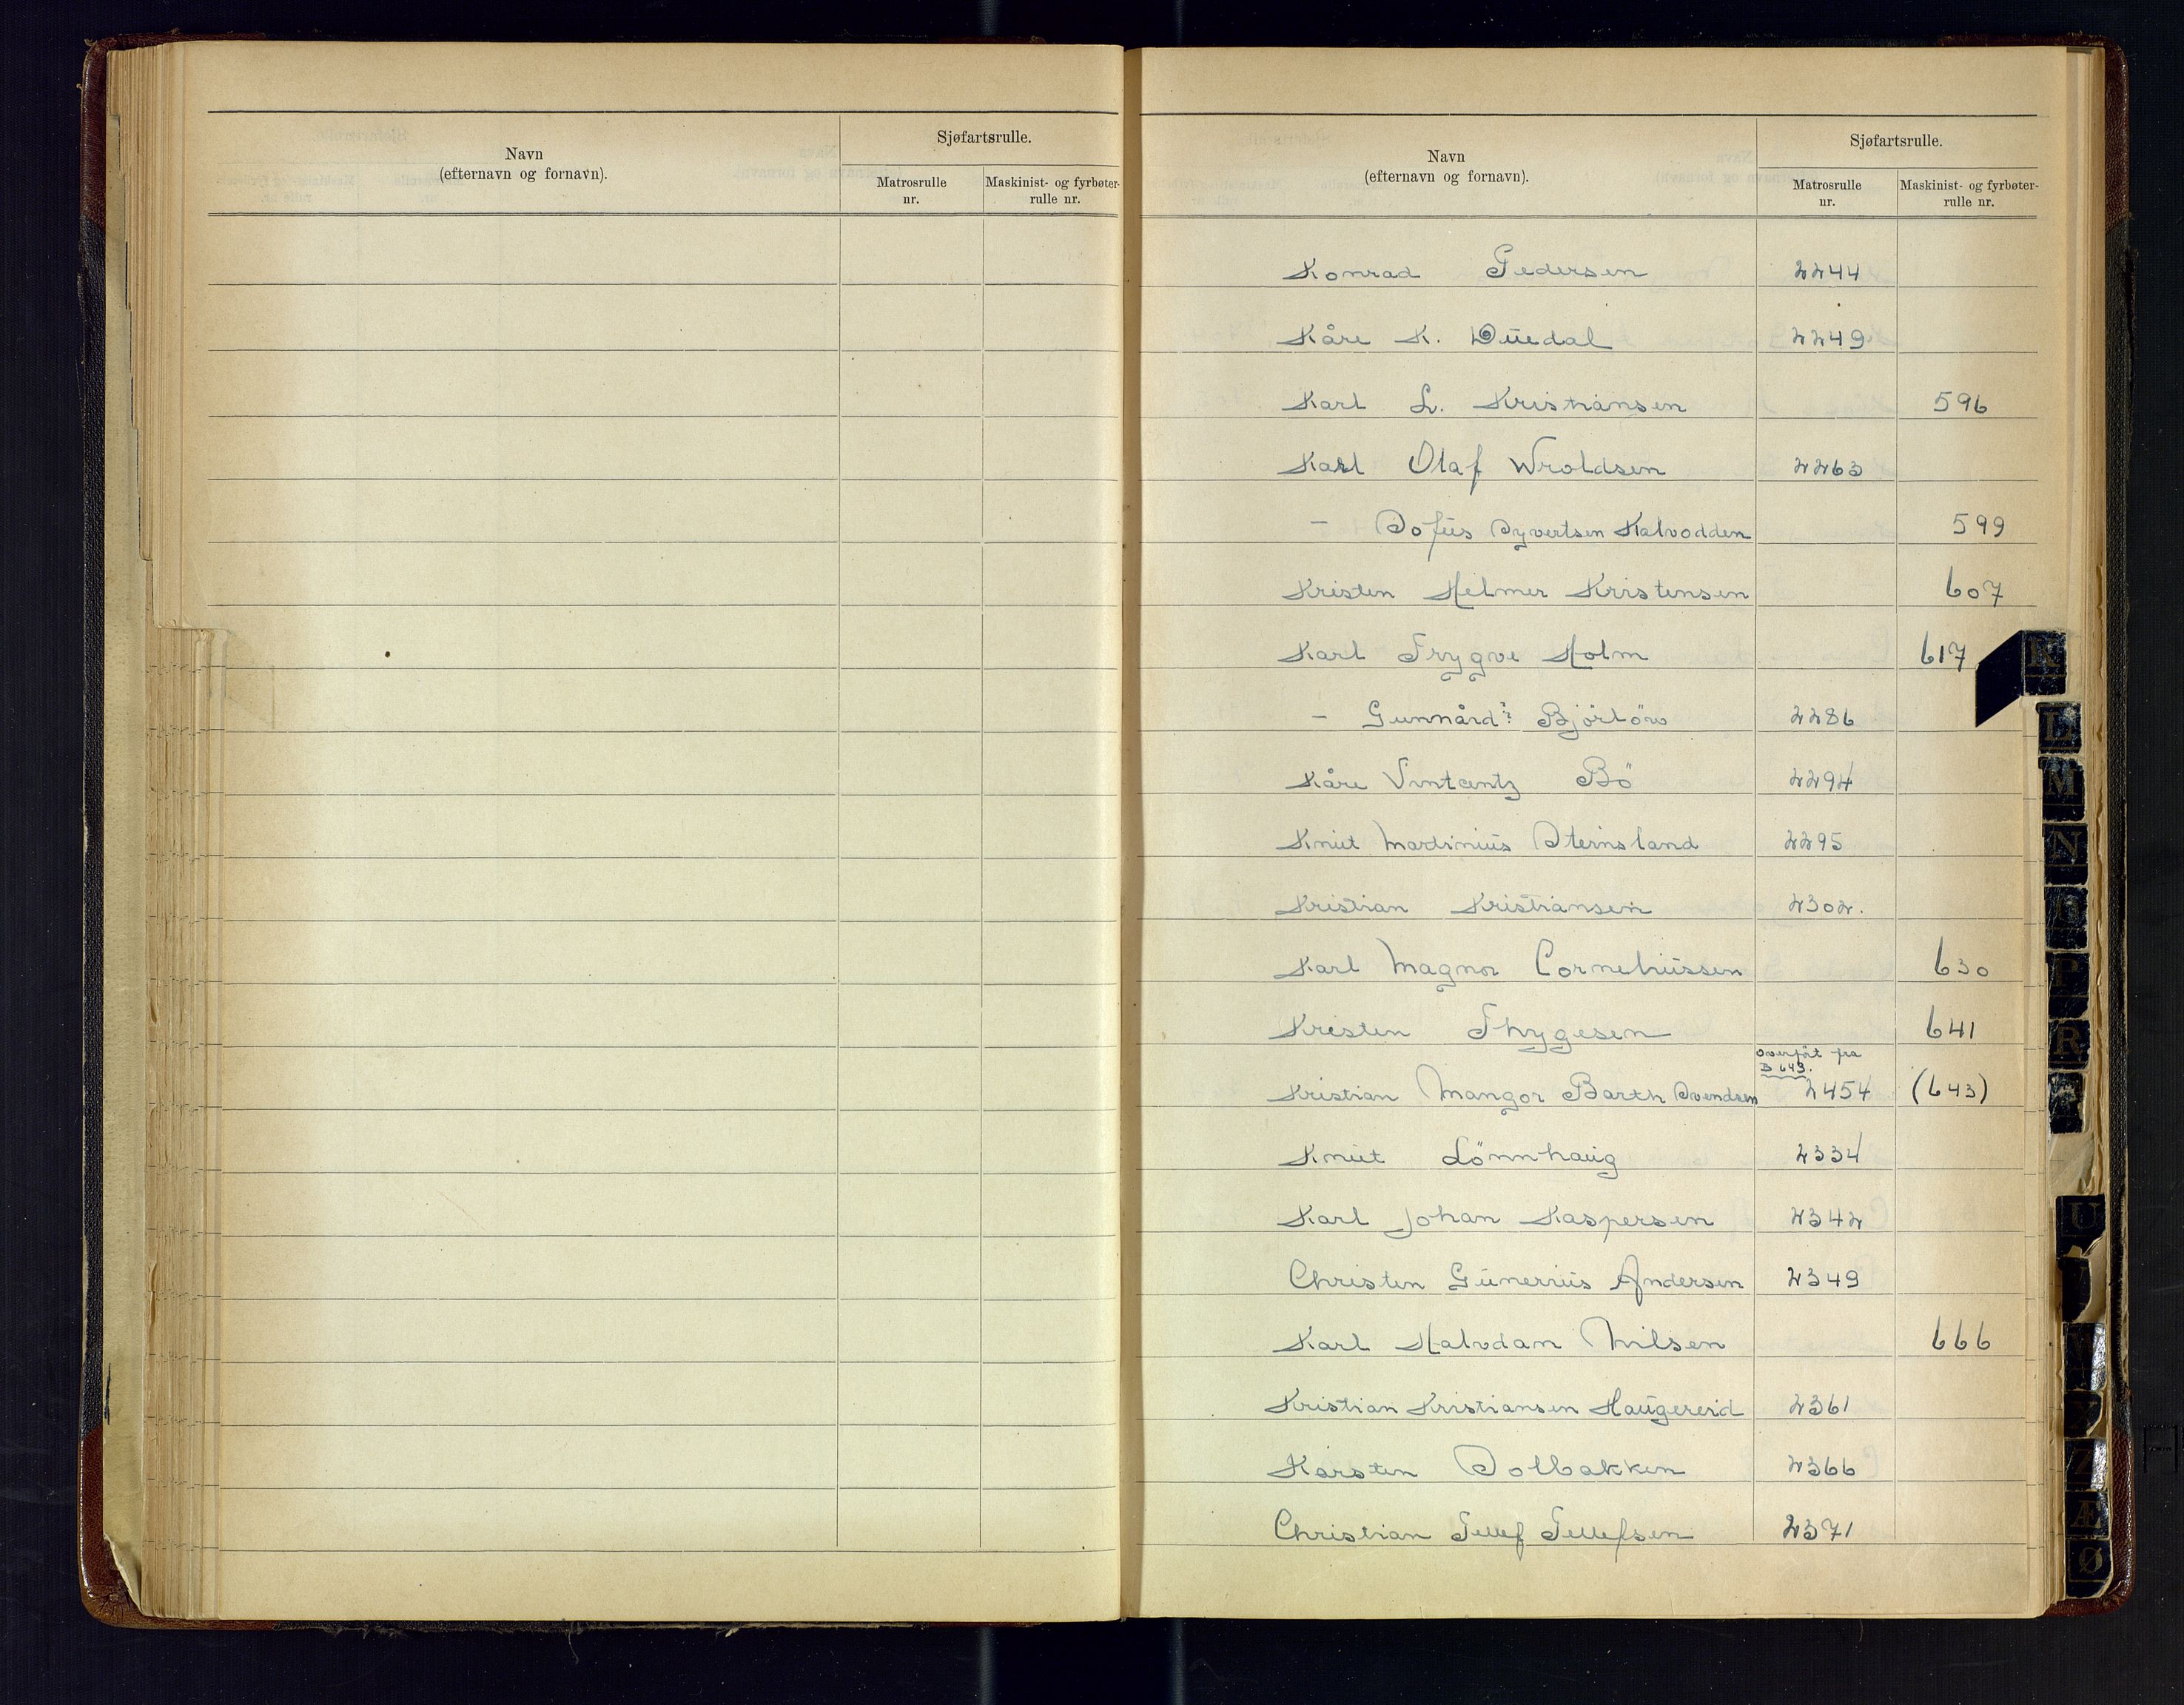 Navn
(efternavn og fornavn).
Sjøfartsrulle.
Matrosrulle
nr.
Maskinist- og fyrbøter-
rulle nr.
Navn
(efternavn og fornavn).
Sjøfartsrulle.
Matrosrulle
nr.
Maskinist- og fyrbøter-
rulle nr.
Konrad Pedersen 2244
Kåre K. Duedal 2249
Karl L. Kristiansen 596
Karl Olaf Wroldsen 2263
— Sofus Syvertsen Kalvodden 599
Kristen Helmer Kristensen 607
Karl Trygve Holm 617
— Gunnård? Björlöw 2286
Kåre Vintentz Bö 2294
Knut Martinius Steinsland 2295
Kristian Kristiansen 2302.
Karl Magnor Corneliussen 630
Kristen Thygesen 641
overfört fra
B 643.
Kristian Mangor Barth Svendsen 2454 (643)
Knut Lönnhaug 2334
Karl Johan Kaspersen 2342
Christen Gunerius Andersen 2349
Karl Halvdan Nilsen 666
Kristian Kristiansen Haugereid 2361
Karsten Solbakken 2366
Christian Tellef Tellefsen 2371
K
L
M
N
O
P
R
U
Z
Æ
Ø